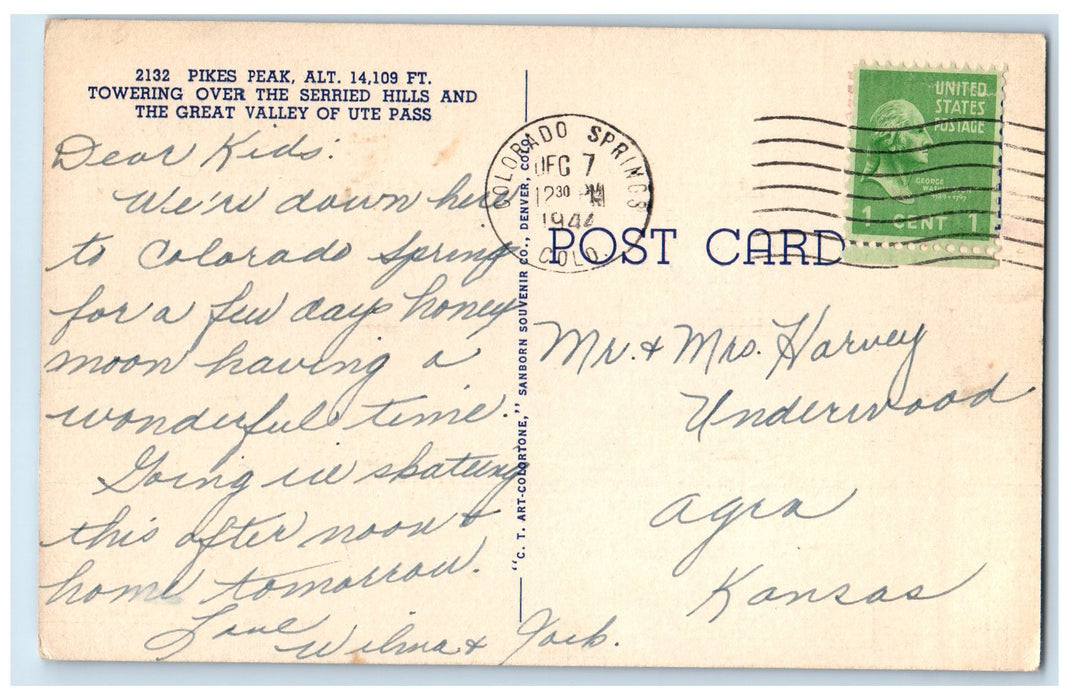 2132 PIKES PEAK, ALT. 14,109 FT.
TOWERING OVER THE SERRIED HILLS AND
THE GREAT VALLEY OF UTE PASS
Dear Kids:
We're down here
to Colorado Springs
for a few days honey
moon having a
wonderful time.
Going ice skateing
this after noon &
home tomorrow.
Love
Wilma & Jack.
"C. T. ART-COLORTONE," SANBORN SOUVENIR CO., DENVER, COLO.
COLORADO SPRINGS
DEC 7
12 30 PM
1944
COLO.
UNITED
STATES
POSTAGE
GEORGE
1 CENT 1
POST CARD
Mr. & Mrs. Harvey
Underwood
Agra
Kansas